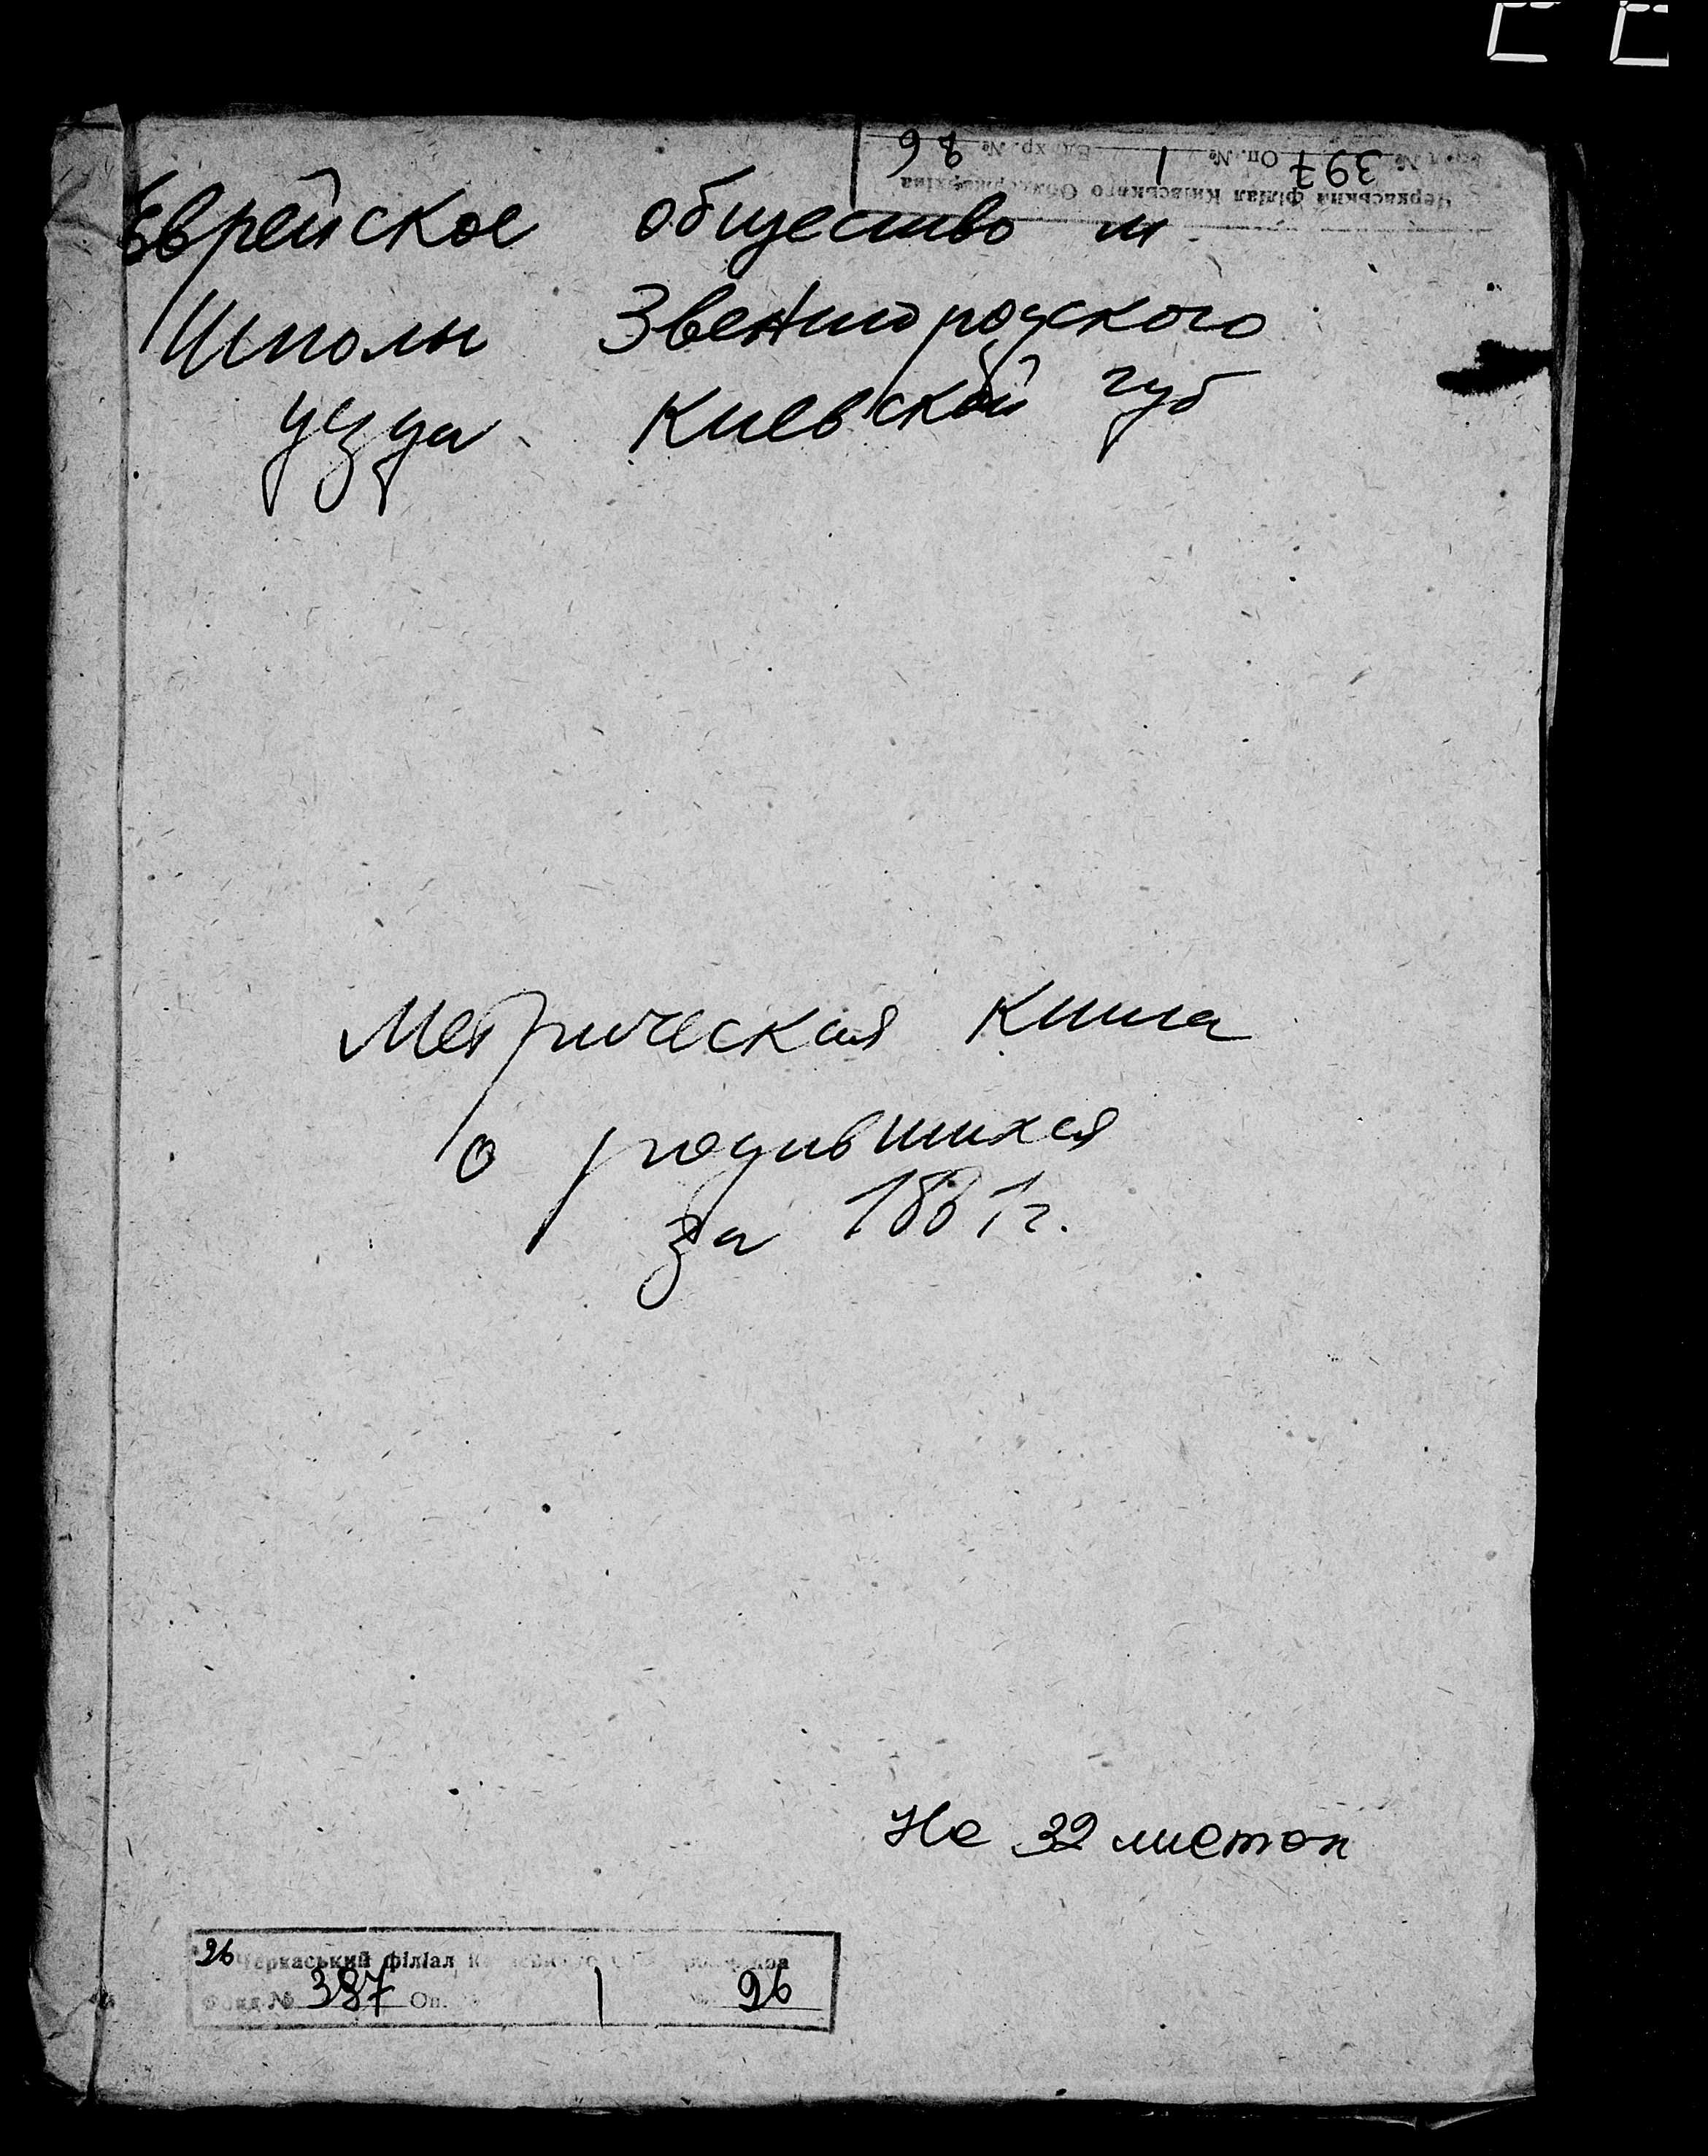 Черкаський філіал Київського Облдержархіва
397 Оп. № 1 Ед. хр. №
Еврейское общество м
Шполы Звенигородского
уезда Киевской губ
Метрическая книга
о родившихся
за г.
На 32 листах
26 Черкаський філіал
Фонд № Оп. 1 26